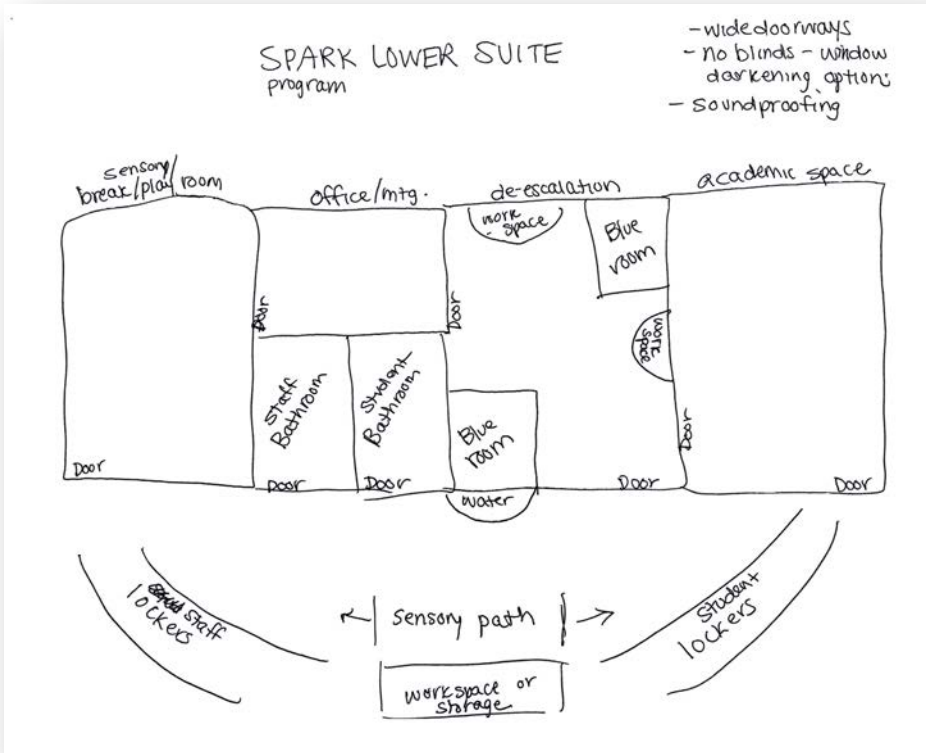 SPARK LOWER SUITE
program
- wide doorways
- no blinds - window
darkening options
- soundproofing
sensory/
break/play room
office/mtg.
de-escalation
academic space
work
space
Blue
room
Door
Door
work
space
Staff
Bathroom
Student
Bathroom
Blue
room
Door
Door
Door
Door
water
Door
Door
Staff
lockers
sensory path
Student
lockers
workspace or
storage